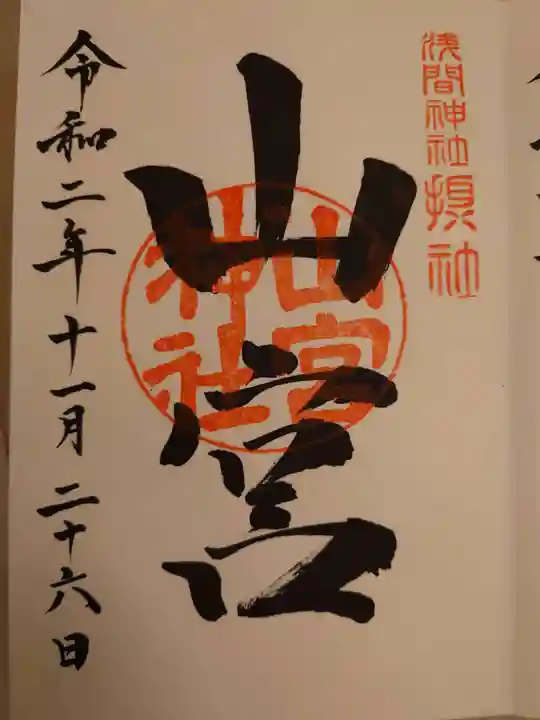 浅間神社摂社
山宮
山宮
神社
令和二年十一月二十六日